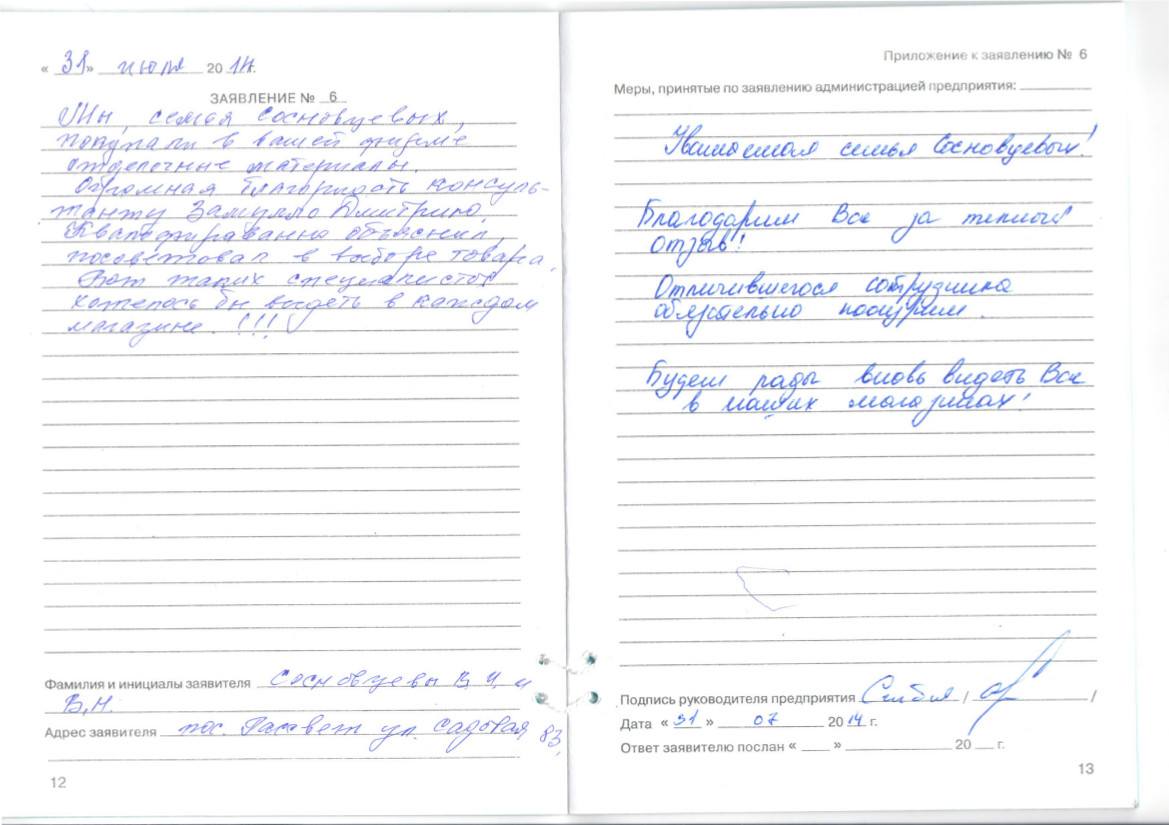 « 31 » июля 2014г.
ЗАЯВЛЕНИЕ № 6
Мы, семья Сосновцевых,
покупали в вашей фирме
отделочные материалы.
Огромная благодарность консуль-
танту Замулло Дмитрию.
объяснил,
посоветовал в выборе товара.
Вот таких специалистов
хотелось бы видеть в каждом
магазине. !!!
Фамилия и инициалы заявителя Сосновцевы В.И. и
В.Н.
Адрес заявителя пос. Рассвет ул. Садовая 83.
12
Приложение к заявлению № 6
Меры, принятые по заявлению администрацией предприятия:
Уважаемая семья Сосновцевых!
Благодарим Вас за теплый
отзыв!
Отличившегося сотрудника
обязательно поощрим.
Будем рады вновь видеть Вас
в наших магазинах!
Подпись руководителя предприятия / /
Дата « 31 » 07 2014 г.
Ответ заявителю послан « » 20 г.
13